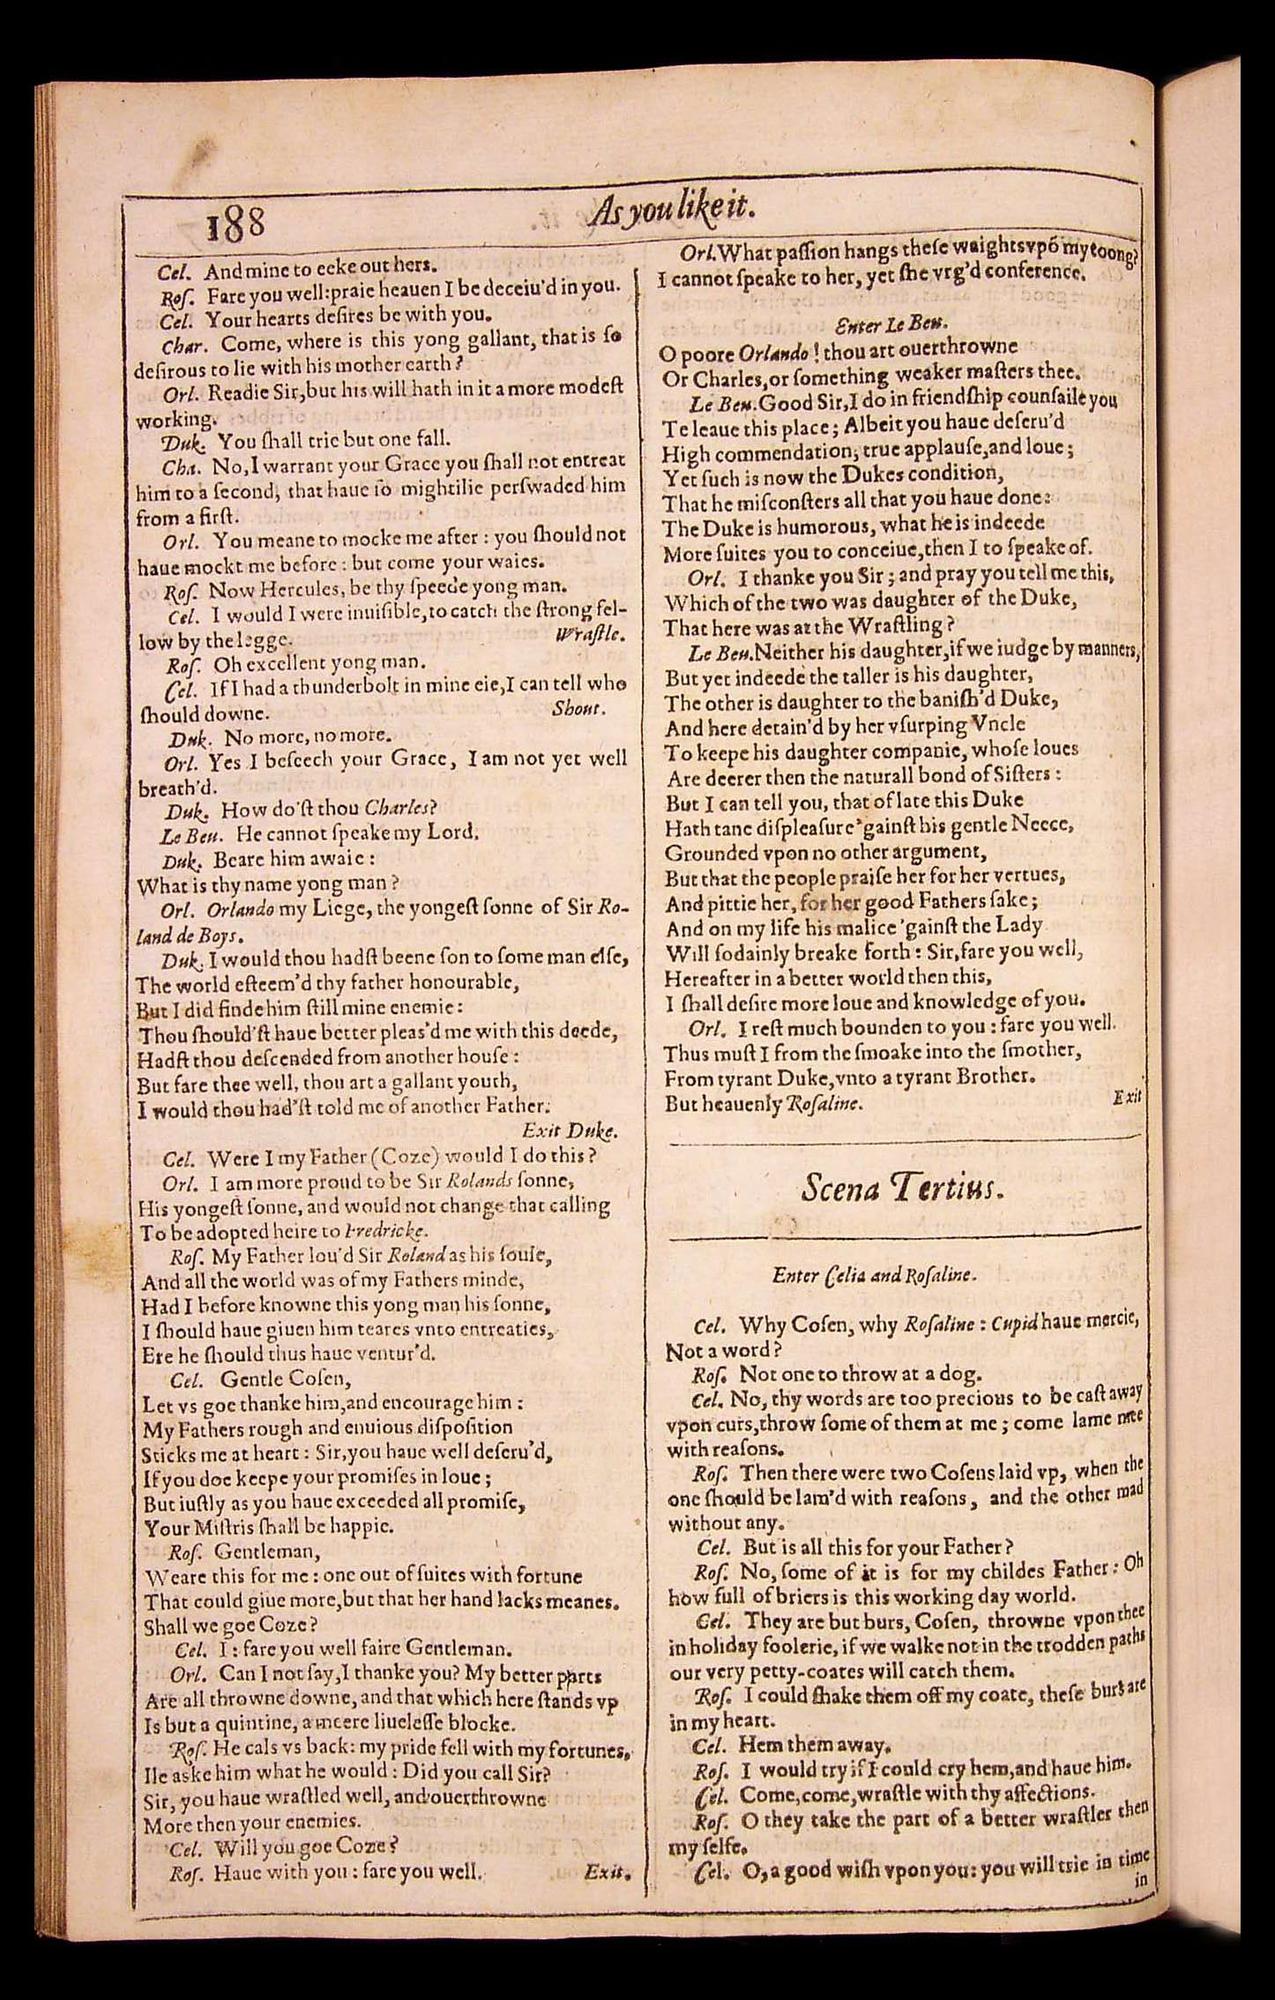 188
As you like it.
Cel. And mine to eeke out hers.
Roſ. Fare you well: praie heauen I be deceiu'd in you.
Cel. Your hearts deſires be with you.
Char. Come, where is this yong gallant, that is ſo
deſirous to lie with his mother earth?
Orl. Readie Sir, but his will hath in it a more modeſt
working.
Duk. You ſhall trie but one fall.
Cha. No, I warrant your Grace you ſhall not entreat
him to a ſecond, that haue ſo mightilie perſwaded him
from a firſt.
Orl. You meane to mocke me after : you ſhould not
haue mockt me before : but come your waies.
Roſ. Now Hercules, be thy ſpeede yong man.
Cel. I would I were inuiſible, to catch the ſtrong fel-
low by the legge. Wraſtle.
Roſ. Oh excellent yong man.
Cel. If I had a thunderbolt in mine eie, I can tell who
ſhould downe. Shout.
Duk. No more, no more.
Orl. Yes I beſeech your Grace, I am not yet well
breath'd.
Duk. How do'ſt thou Charles?
Le Beu. He cannot ſpeake my Lord.
Duk. Beare him awaie :
What is thy name yong man ?
Orl. Orlando my Liege, the yongeſt ſonne of Sir Ro-
land de Boys.
Duk. I would thou hadſt beene ſon to ſome man elſe,
The world eſteem'd thy father honourable,
But I did finde him ſtill mine enemie :
Thou ſhould'ſt haue better pleas'd me with this deede,
Hadſt thou deſcended from another houſe :
But fare thee well, thou art a gallant youth,
I would thou had'ſt told me of another Father.
Exit Duke.
Cel. Were I my Father (Coze) would I do this ?
Orl. I am more proud to be Sir Rolands ſonne,
His yongeſt ſonne, and would not change that calling
To be adopted heire to Fredricke.
Roſ. My Father lou'd Sir Roland as his ſoule,
And all the world was of my Fathers minde,
Had I before knowne this yong man his ſonne,
I ſhould haue giuen him teares vnto entreaties,
Ere he ſhould thus haue ventur'd.
Cel. Gentle Coſen,
Let vs goe thanke him, and encourage him :
My Fathers rough and enuious diſpoſition
Sticks me at heart : Sir, you haue well deſeru'd,
If you doe keepe your promiſes in loue ;
But iuſtly as you haue exceeded all promiſe,
Your Miſtris ſhall be happie.
Roſ. Gentleman,
Weare this for me : one out of ſuites with fortune
That could giue more, but that her hand lacks meanes.
Shall we goe Coze ?
Cel. I : fare you well faire Gentleman.
Orl. Can I not ſay, I thanke you? My better parts
Are all throwne downe, and that which here ſtands vp
Is but a quintine, a meere liueleſſe blocke.
Roſ. He cals vs back: my pride fell with my fortunes,
Ile aske him what he would : Did you call Sir?
Sir, you haue wraſtled well, and ouerthrowne
More then your enemies.
Cel. Will you goe Coze ?
Roſ. Haue with you : fare you well. Exit.
Orl. What paſſion hangs theſe waights vpõ my toong?
I cannot ſpeake to her, yet ſhe vrg'd conference.
Enter Le Beu.
O poore Orlando ! thou art ouerthrowne
Or Charles, or ſomething weaker maſters thee.
Le Beu. Good Sir, I do in friendſhip counſaile you
To leaue this place ; Albeit you haue deſeru'd
High commendation, true applauſe, and loue ;
Yet ſuch is now the Dukes condition,
That he miſconſters all that you haue done :
The Duke is humorous, what he is indeede
More ſuites you to conceiue, then I to ſpeake of.
Orl. I thanke you Sir ; and pray you tell me this,
Which of the two was daughter of the Duke,
That here was at the Wraſtling ?
Le Beu. Neither his daughter, if we iudge by manners,
But yet indeede the taller is his daughter,
The other is daughter to the baniſh'd Duke,
And here detain'd by her vſurping Vncle
To keepe his daughter companie, whoſe loues
Are deerer then the naturall bond of Siſters :
But I can tell you, that of late this Duke
Hath tane diſpleaſure 'gainſt his gentle Neece,
Grounded vpon no other argument,
But that the people praiſe her for her vertues,
And pittie her, for her good Fathers ſake ;
And on my life his malice 'gainſt the Lady
Will ſodainly breake forth : Sir, fare you well,
Hereafter in a better world then this,
I ſhall deſire more loue and knowledge of you.
Orl. I reſt much bounden to you : fare you well.
Thus muſt I from the ſmoake into the ſmother,
From tyrant Duke, vnto a tyrant Brother.
But heauenly Roſaline. Exit
Scena Tertius.
Enter Celia and Roſaline.
Cel. Why Coſen, why Roſaline : Cupid haue mercie,
Not a word ?
Roſ. Not one to throw at a dog.
Cel. No, thy words are too precious to be caſt away
vpon curs, throw ſome of them at me ; come lame mee
with reaſons.
Roſ. Then there were two Coſens laid vp, when the
one ſhould be lam'd with reaſons, and the other mad
without any.
Cel. But is all this for your Father ?
Roſ. No, ſome of it is for my childes Father : Oh
how full of briers is this working day world.
Cel. They are but burs, Coſen, throwne vpon thee
in holiday foolerie, if we walke not in the trodden paths
our very petty-coates will catch them.
Roſ. I could ſhake them off my coate, theſe burs are
in my heart.
Cel. Hem them away.
Roſ. I would try if I could cry hem, and haue him.
Cel. Come, come, wraſtle with thy affections.
Roſ. O they take the part of a better wraſtler then
my ſelfe.
Cel. O, a good wiſh vpon you: you will trie in time
in